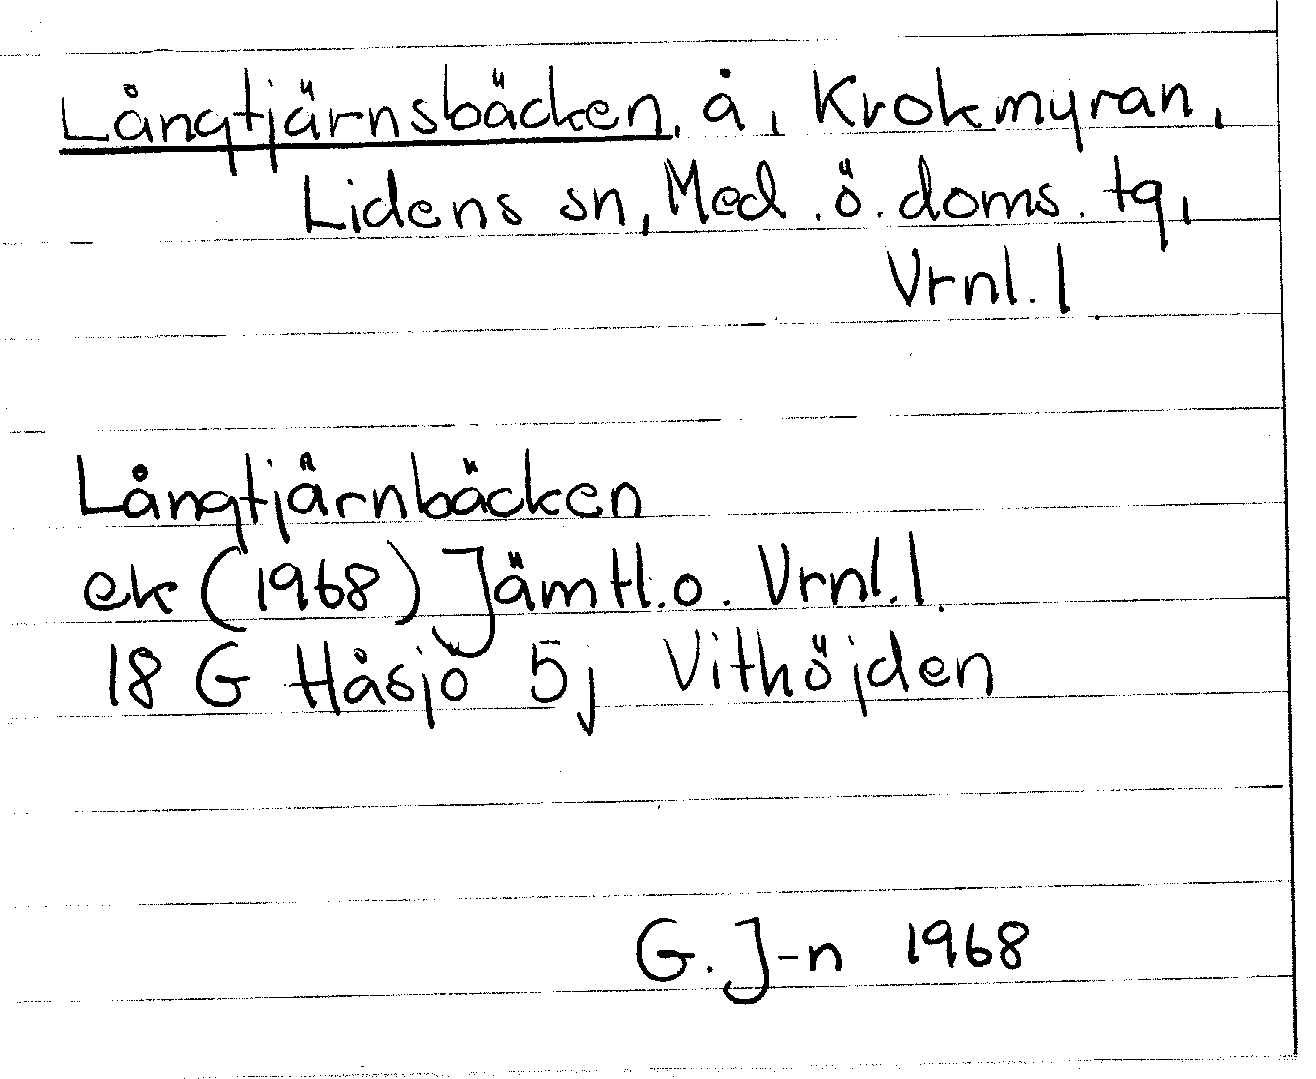 Långtjärnsbäcken, å, Krokmyran,
Lidens sn, Med. ö. doms. tg,
Vrnl. l
Långtjärnbäcken
ek (1968) Jämtl. o. Vrnl. l.
18 G Håsjö 5j Vithöjden
G. J-n 1968